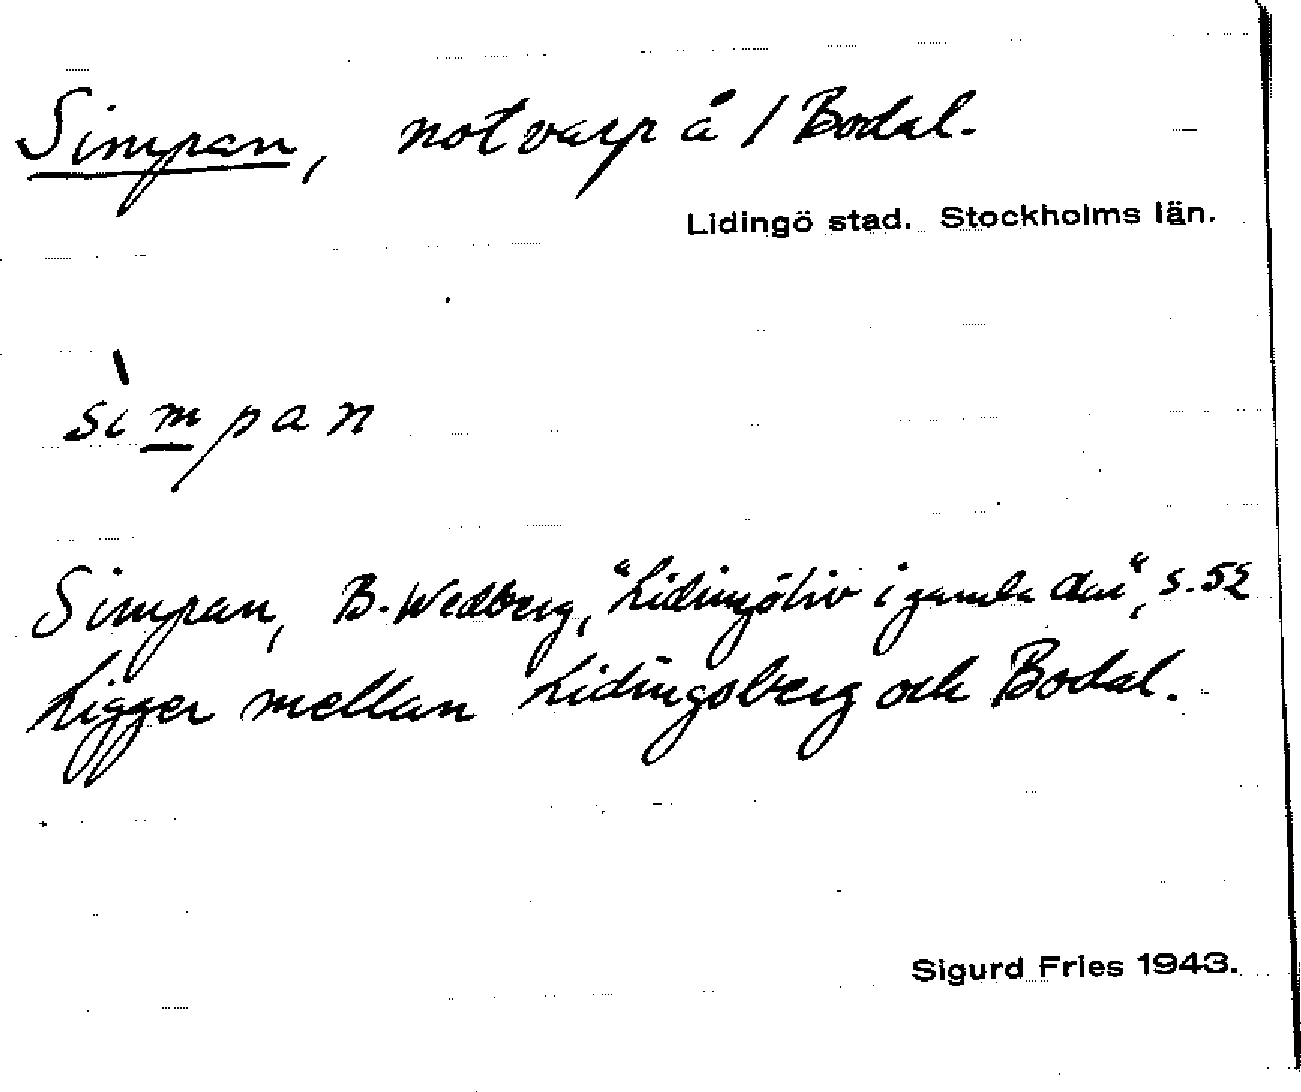 Simpan, notvarp å 1 Bodal.
Lidingö stad. Stockholms län.
sìmpan
Simpan, B. Wedberg, "Lidingöliv i gamla dar", s. 52
Ligger mellan Lidingsberg och Bodal.
Sigurd Fries 1943.